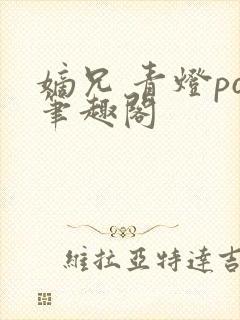 嫡兄 青燈po
筆趣閣
維拉亞特達吉